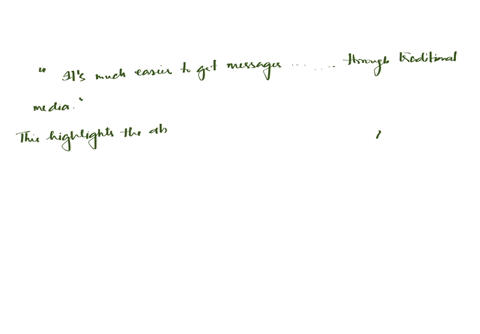 " It's much easier to get messages ........ through traditional
media."
This highlights the ab